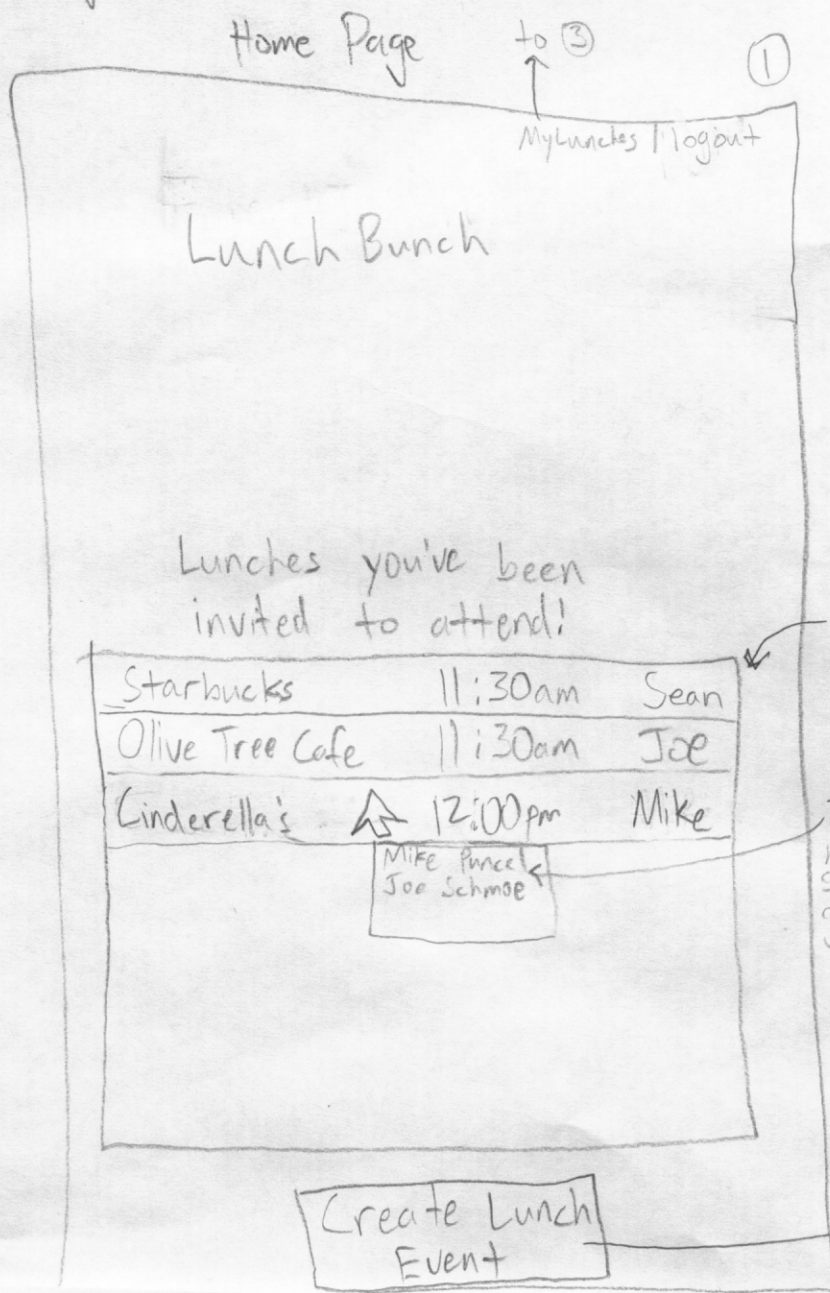 Home Page
to ③
①
MyLunches | logout
Lunch Bunch
Lunches you've been
invited to attend!
Starbucks 11:30am Sean
Olive Tree Cafe 11:30am Joe
Cinderella's 12:00pm Mike
Mike Puncel
Joe Schmoe
Create Lunch
Event